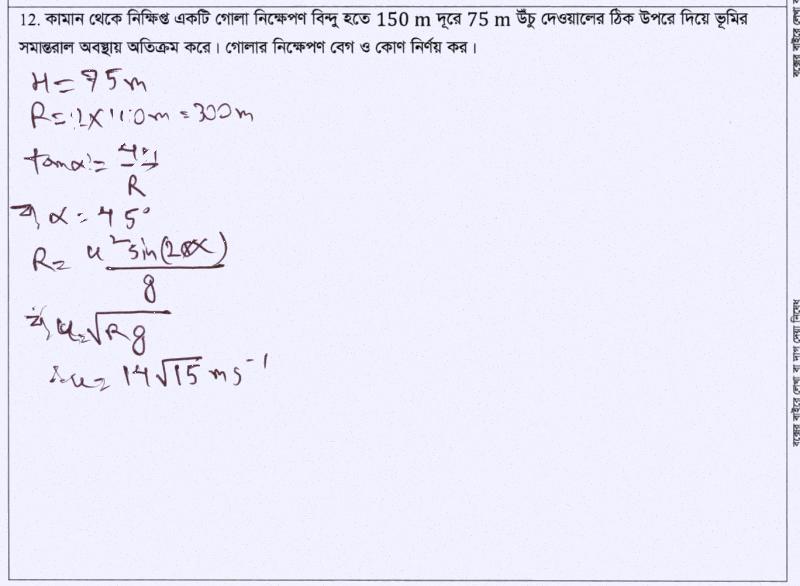 12. কামান থেকে নিক্ষিপ্ত একটি গোলা নিক্ষেপণ বিন্দু হতে 150 m দূরে 75 m উঁচু দেওয়ালের ঠিক উপরে দিয়ে ভূমির
সমান্তরাল অবস্থায় অতিক্রম করে। গোলার নিক্ষেপণ বেগ ও কোণ নির্ণয় কর।
H = 75m
R = 2 × m = 300m
tanα = / R
⇒ α = 45°
R = u² sin(2α) / g
⇒ u = √Rg
∴ u = 14√15 ms⁻¹